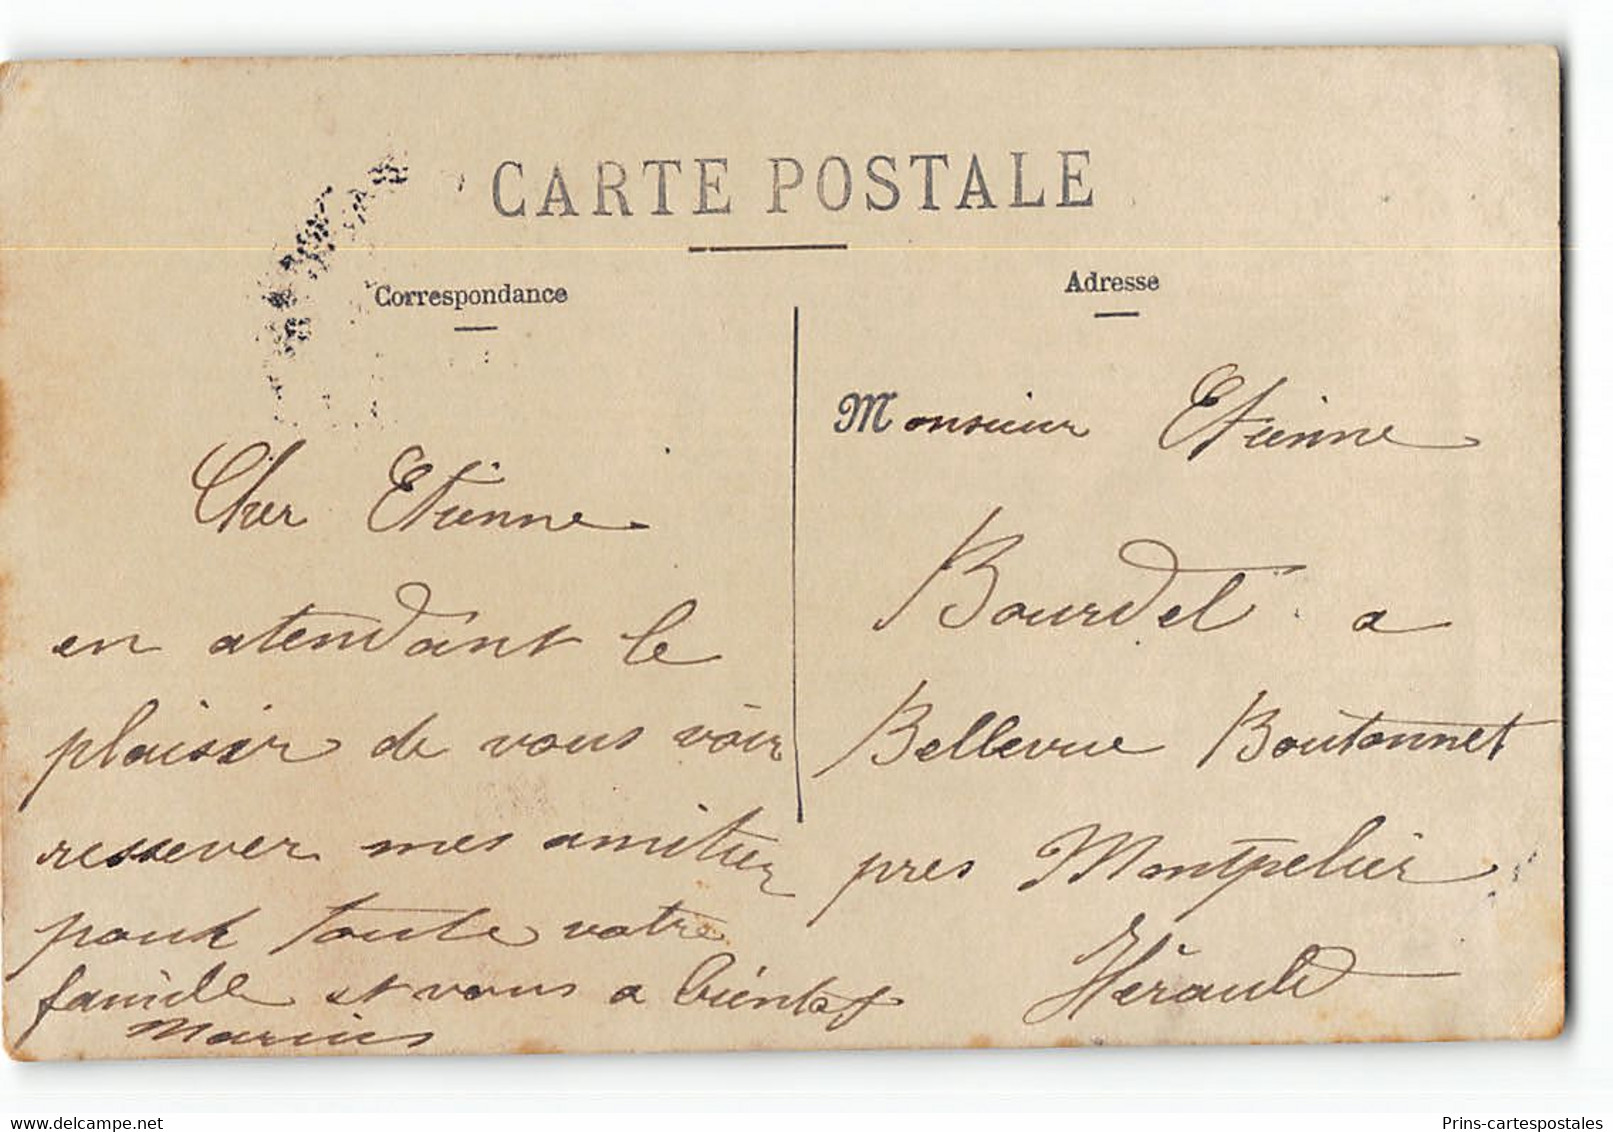 CARTE POSTALE
Correspondance
Cher Etienne
en atendant le
plaisir de vous voir
ressever mes amitiez
pour toute votre
famille et vous a bientot
Marius
Adresse
Monsieur Etienne
Bourdel a
Bellevue Boutonnet
pres Montpelier
Hérault
delcampe.net
Prins-cartespostales